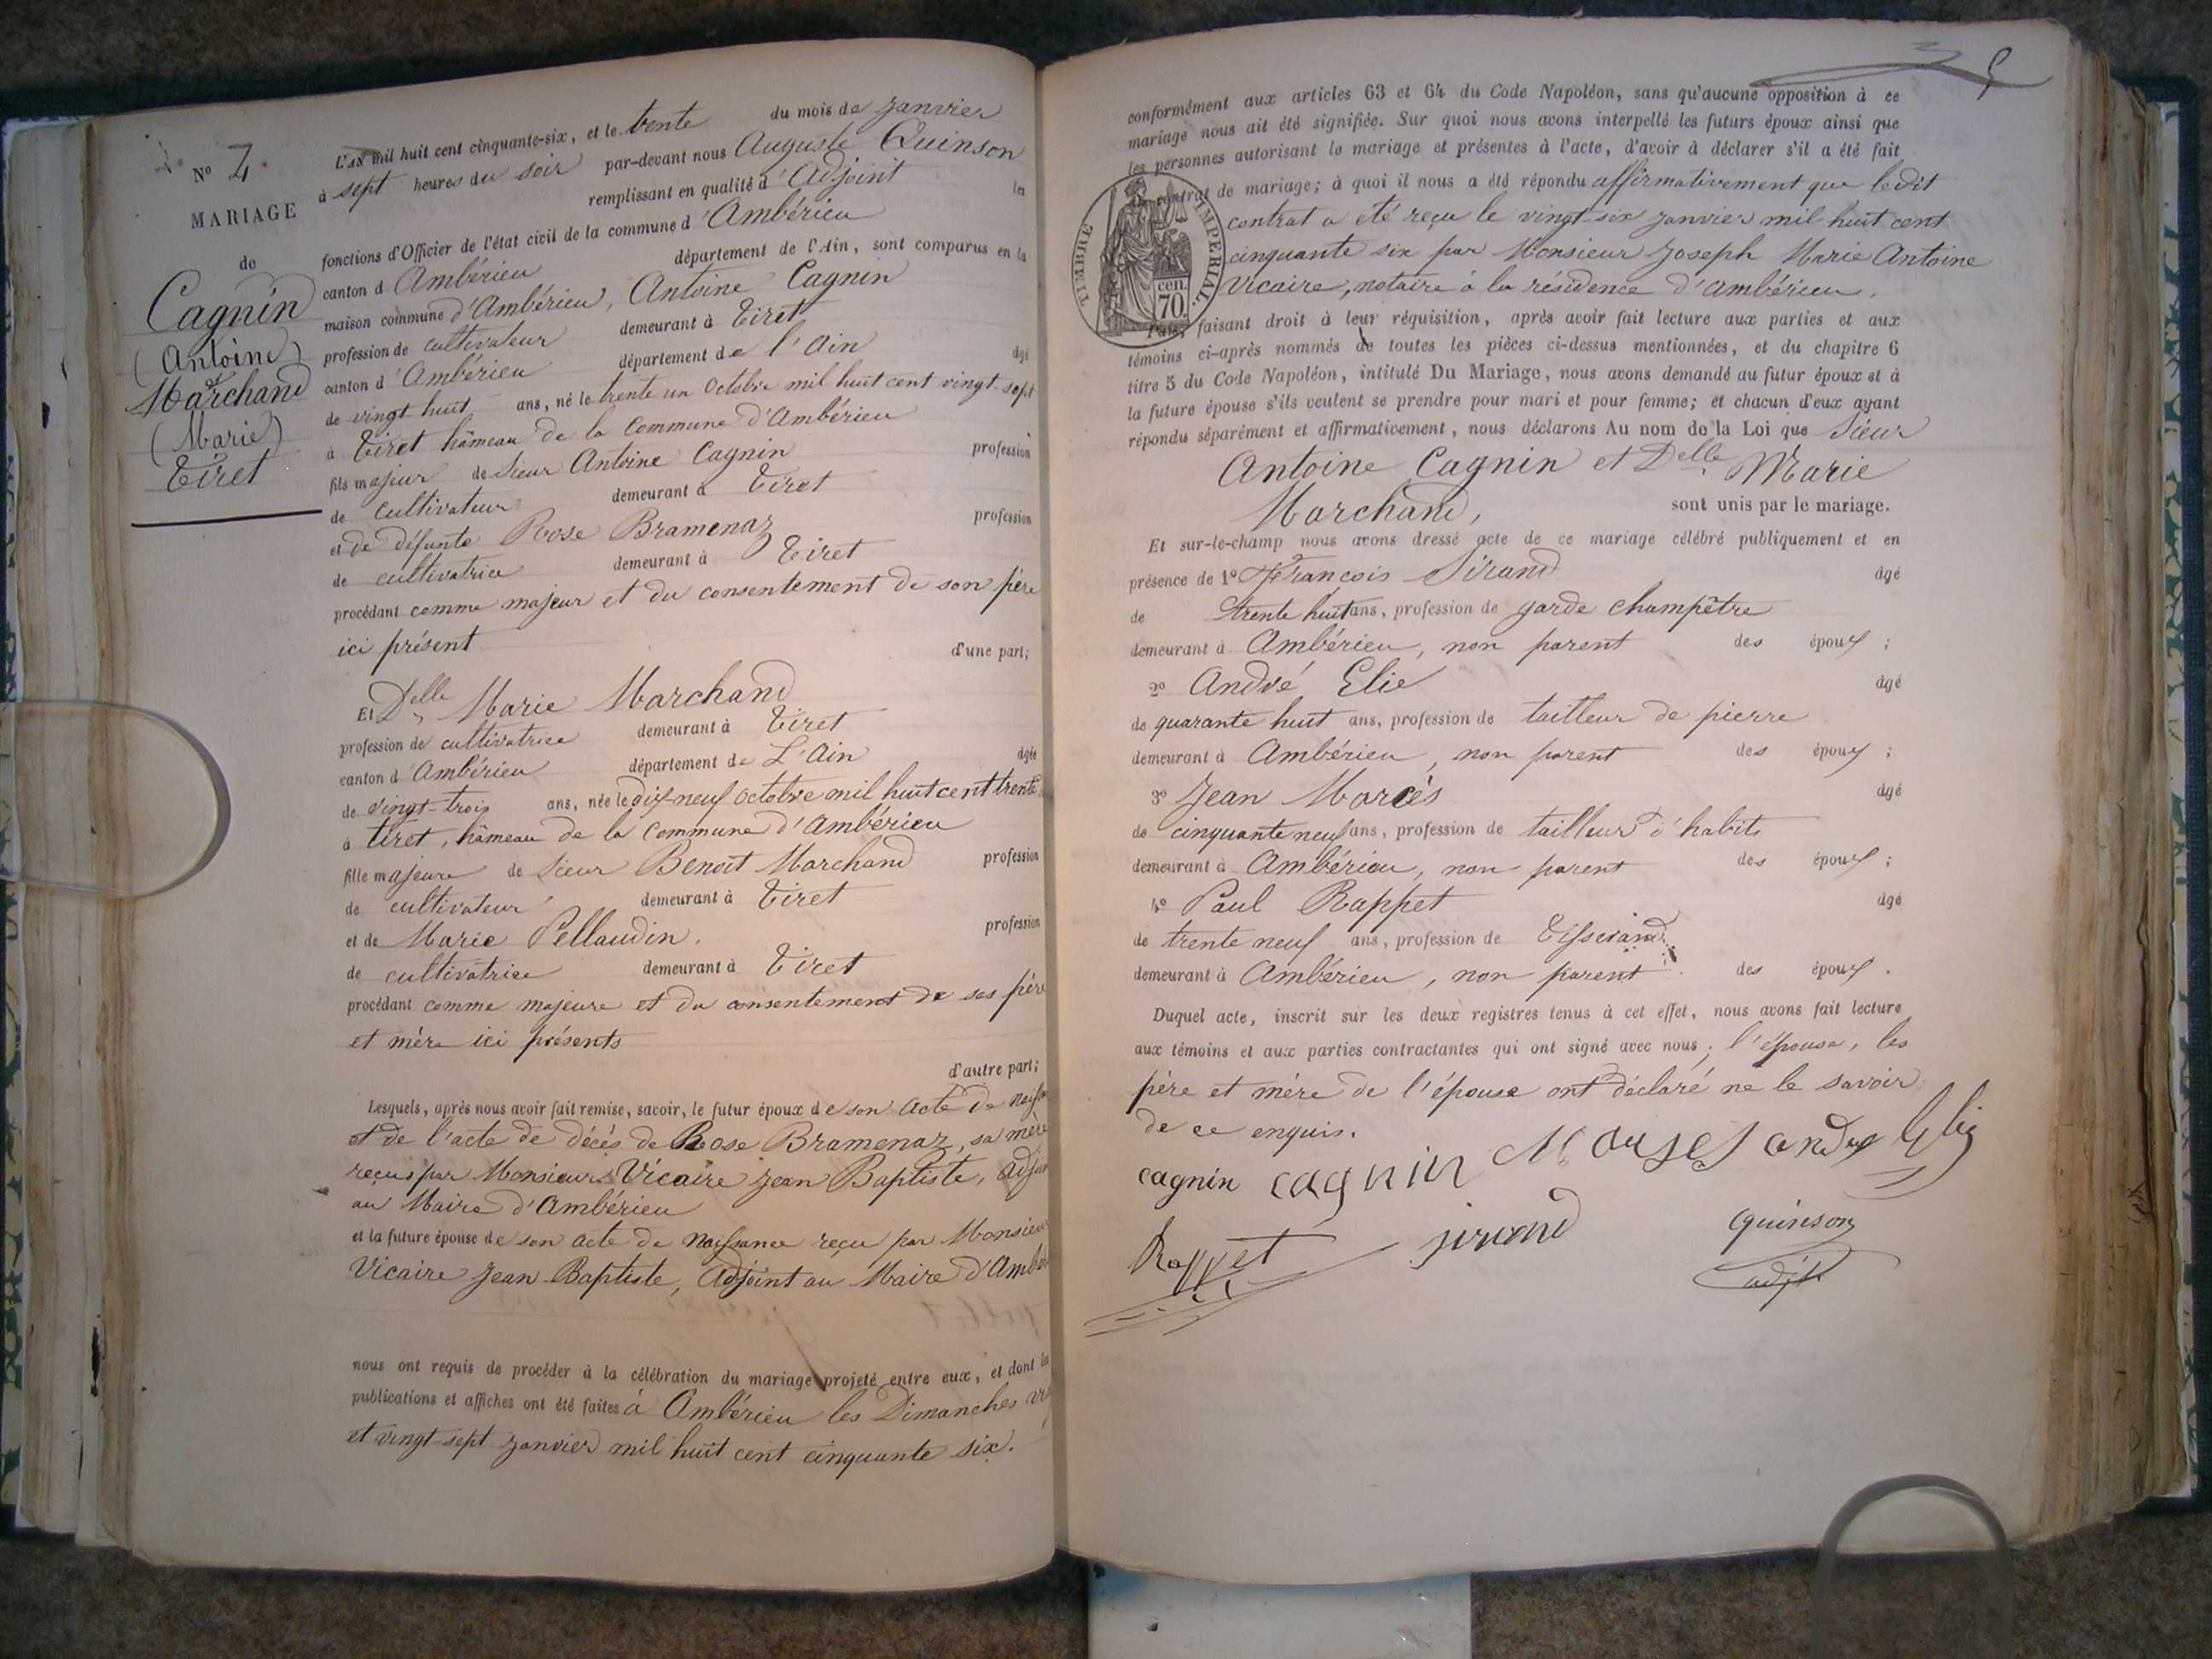 Nº 4.
MARIAGE
de
Cagnin
(Antoine)
et
Marchand
(Marie)
Tiret
L'AN mil huit cent cinquante-six, et le trente du mois de janvier
à sept heures du soir par-devant nous Auguste Quinson
remplissant en qualité d'Adjoint les
fonctions d'Officier de l'état civil de la commune d'Ambérieu
canton d'Ambérieu département de l'Ain, sont comparus en la
maison commune d'Ambérieu, Antoine Cagnin
profession de cultivateur demeurant à Tiret
canton d'Ambérieu département de l'Ain âgé
de vingt huit ans, né le trente un Octobre mil huit cent vingt-sept
à Tiret hâmeau de la Commune d'Ambérieu
fils majeur de Sieur Antoine Cagnin profession
de cultivateur demeurant à Tiret
et de défunte Rose Bramenaz profession
de cultivatrice demeurant à Tiret
procédant comme majeur et du consentement de son père
ici présent d'une part;
Et Delle Marie Marchand
profession de cultivatrice demeurant à Tiret
canton d'Ambérieu département de L'Ain âgée
de vingt-trois ans, née le dix-neuf Octobre mil huit cent trente
à Tiret, hâmeau de la Commune d'Ambérieu
fille majeure de Sieur Benoît Marchand profession
de cultivateur demeurant à Tiret
et de Marie Pellaudin. profession
de cultivatrice demeurant à Tiret
procédant comme majeure et du consentement de ses père
et mère ici présents
d'autre part;
Lesquels, après nous avoir fait remise, savoir, le futur époux de son Acte de
et de l'acte de décès de Rose Bramenaz, sa mère
reçus par Monsieur Vicaire Jean Baptiste,
au Maire d'Ambérieu
et la future épouse de son acte de Naissance reçu par Monsieur
Vicaire Jean-Baptiste, Adjoint au Maire
nous ont requis de procéder à la célébration du mariage projeté entre eux, et dont les
publications et affiches ont été faites à Ambérieu les Dimanches
et vingt-sept janvier mil huit cent cinquante six.
conformément aux articles 63 et 64 du Code Napoléon, sans qu'aucune opposition à ce
mariage nous ait été signifiée. Sur quoi nous avons interpellé les futurs époux ainsi que
les personnes autorisant le mariage et présentes à l'acte, d'avoir à déclarer s'il a été fait
contrat de mariage; à quoi il nous a été répondu affirmativement que ledit
contrat a été reçu le vingt-six janvier mil-huit cent
cinquante six par Monsieur Joseph Marie Antoine
Vicaire, notaire à la résidence d'Ambérieu.
TIMBRE IMPÉRIAL
70 cen.
Puis, faisant droit à leur réquisition, après avoir fait lecture aux parties et aux
témoins ci-après nommés de toutes les pièces ci-dessus mentionnées, et du chapitre 6
titre 5 du Code Napoléon, intitulé Du Mariage, nous avons demandé au futur époux et à
la future épouse s'ils veulent se prendre pour mari et pour femme; et chacun d'eux ayant
répondu séparément et affirmativement, nous déclarons Au nom de la Loi que Sieur
Antoine Cagnin et Delle Marie
Marchand, sont unis par le mariage.
Et sur-le-champ nous avons dressé acte de ce mariage célébré publiquement et en
présence de 1º François Sirand âgé
de trente huit ans, profession de garde champêtre
demeurant à Ambérieu, non parent des époux ;
2º André Elie âgé
de quarante huit ans, profession de tailleur de pierre
demeurant à Ambérieu, non parent des époux ;
3º Jean Marcès âgé
de cinquante neuf ans, profession de tailleur d'habits
demeurant à Ambérieu, non parent des époux ;
4º Paul Rappet âgé
de trente neuf ans, profession de Tisserand
demeurant à Ambérieu, non parent des époux.
Duquel acte, inscrit sur les deux registres tenus à cet effet, nous avons fait lecture
aux témoins et aux parties contractantes qui ont signé avec nous; l'épouse, les
père et mère de l'épouse ont déclaré ne le savoir
de ce enquis.
cagnin cagnin andré Elie
Rappet sirand quinson
adjt